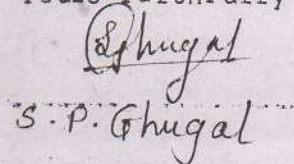 Ghugal
S. P. Ghugal